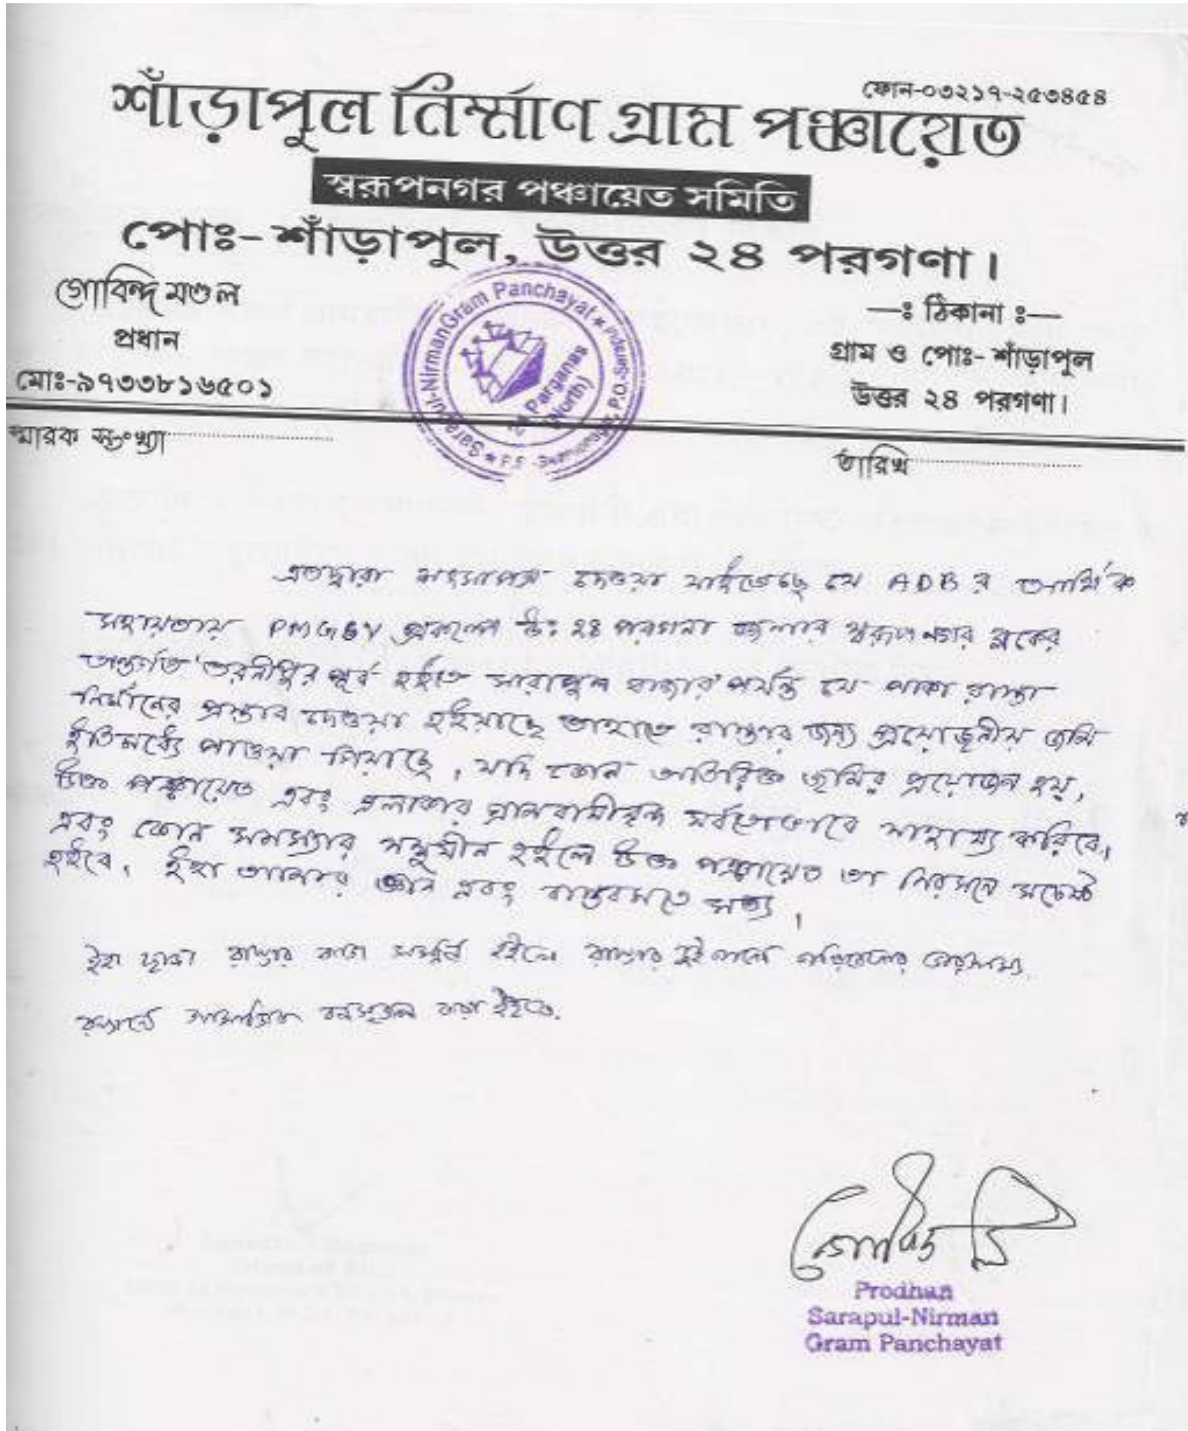 ফোন-০৩২১৭-২৫৩৪৫৪
শাঁড়াপুল নির্ম্মাণ গ্রাম পঞ্চায়েত
স্বরূপনগর পঞ্চায়েত সমিতি
পোঃ- শাঁড়াপুল, উত্তর ২৪ পরগণা।
গোবিন্দ মণ্ডল
প্রধান
মোঃ-৯৭৩৩৮১৬৫০১
—ঃ ঠিকানা ঃ—
গ্রাম ও পোঃ- শাঁড়াপুল
উত্তর ২৪ পরগণা।
Sarapul-Nirman Gram Panchayat ★ P.O.- ★ P.S -
24 Parganas
(North)
স্মারক সংখ্যা
তারিখ
এতদ্বারা দেওয়া যাইতেছে যে ADB র আর্থিক
সহায়তায় PMGSY প্রকল্পে উঃ ২৪ পরগনা জেলার স্বরূপনগর ব্লকের
অন্তর্গত পূর্ব হইতে সারাপুল বাজার পর্যন্ত যে পাকা রাস্তা
নির্মানের প্রস্তাব দেওয়া হইয়াছে তাহাতে রাস্তার জন্য প্রয়োজনীয় জমি
ইতিমধ্যে পাওয়া গিয়াছে, যদি কোন অতিরিক্ত জমির প্রয়োজন হয়,
উক্ত পঞ্চায়েত এবং এলাকার গ্রামবাসীবৃন্দ সর্বতোভাবে সাহায্য করিবে,
এবং কোন সমস্যার সম্মুখীন হইলে উক্ত পঞ্চায়েত তা নিরসনে সচেষ্ট
হইবে, ইহা আমার জ্ঞান এবং বাস্তবমতে সত্য,
ইহা ছাড়া রাস্তার কাজ সম্পূর্ন হইলে রাস্তার দুই পাশে পরিবেশের ভারসাম্য
রক্ষার্থে সামাজিক বনসৃজন করা হইবে.
Prodhan
Sarapul-Nirman
Gram Panchayat